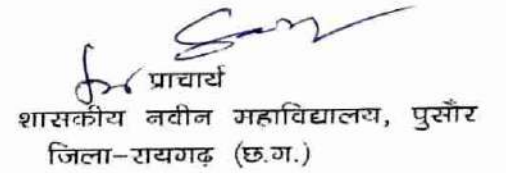 प्राचार्य
शासकीय नवीन महाविद्यालय, पुसौर
जिला-रायगढ़ (छ.ग.)